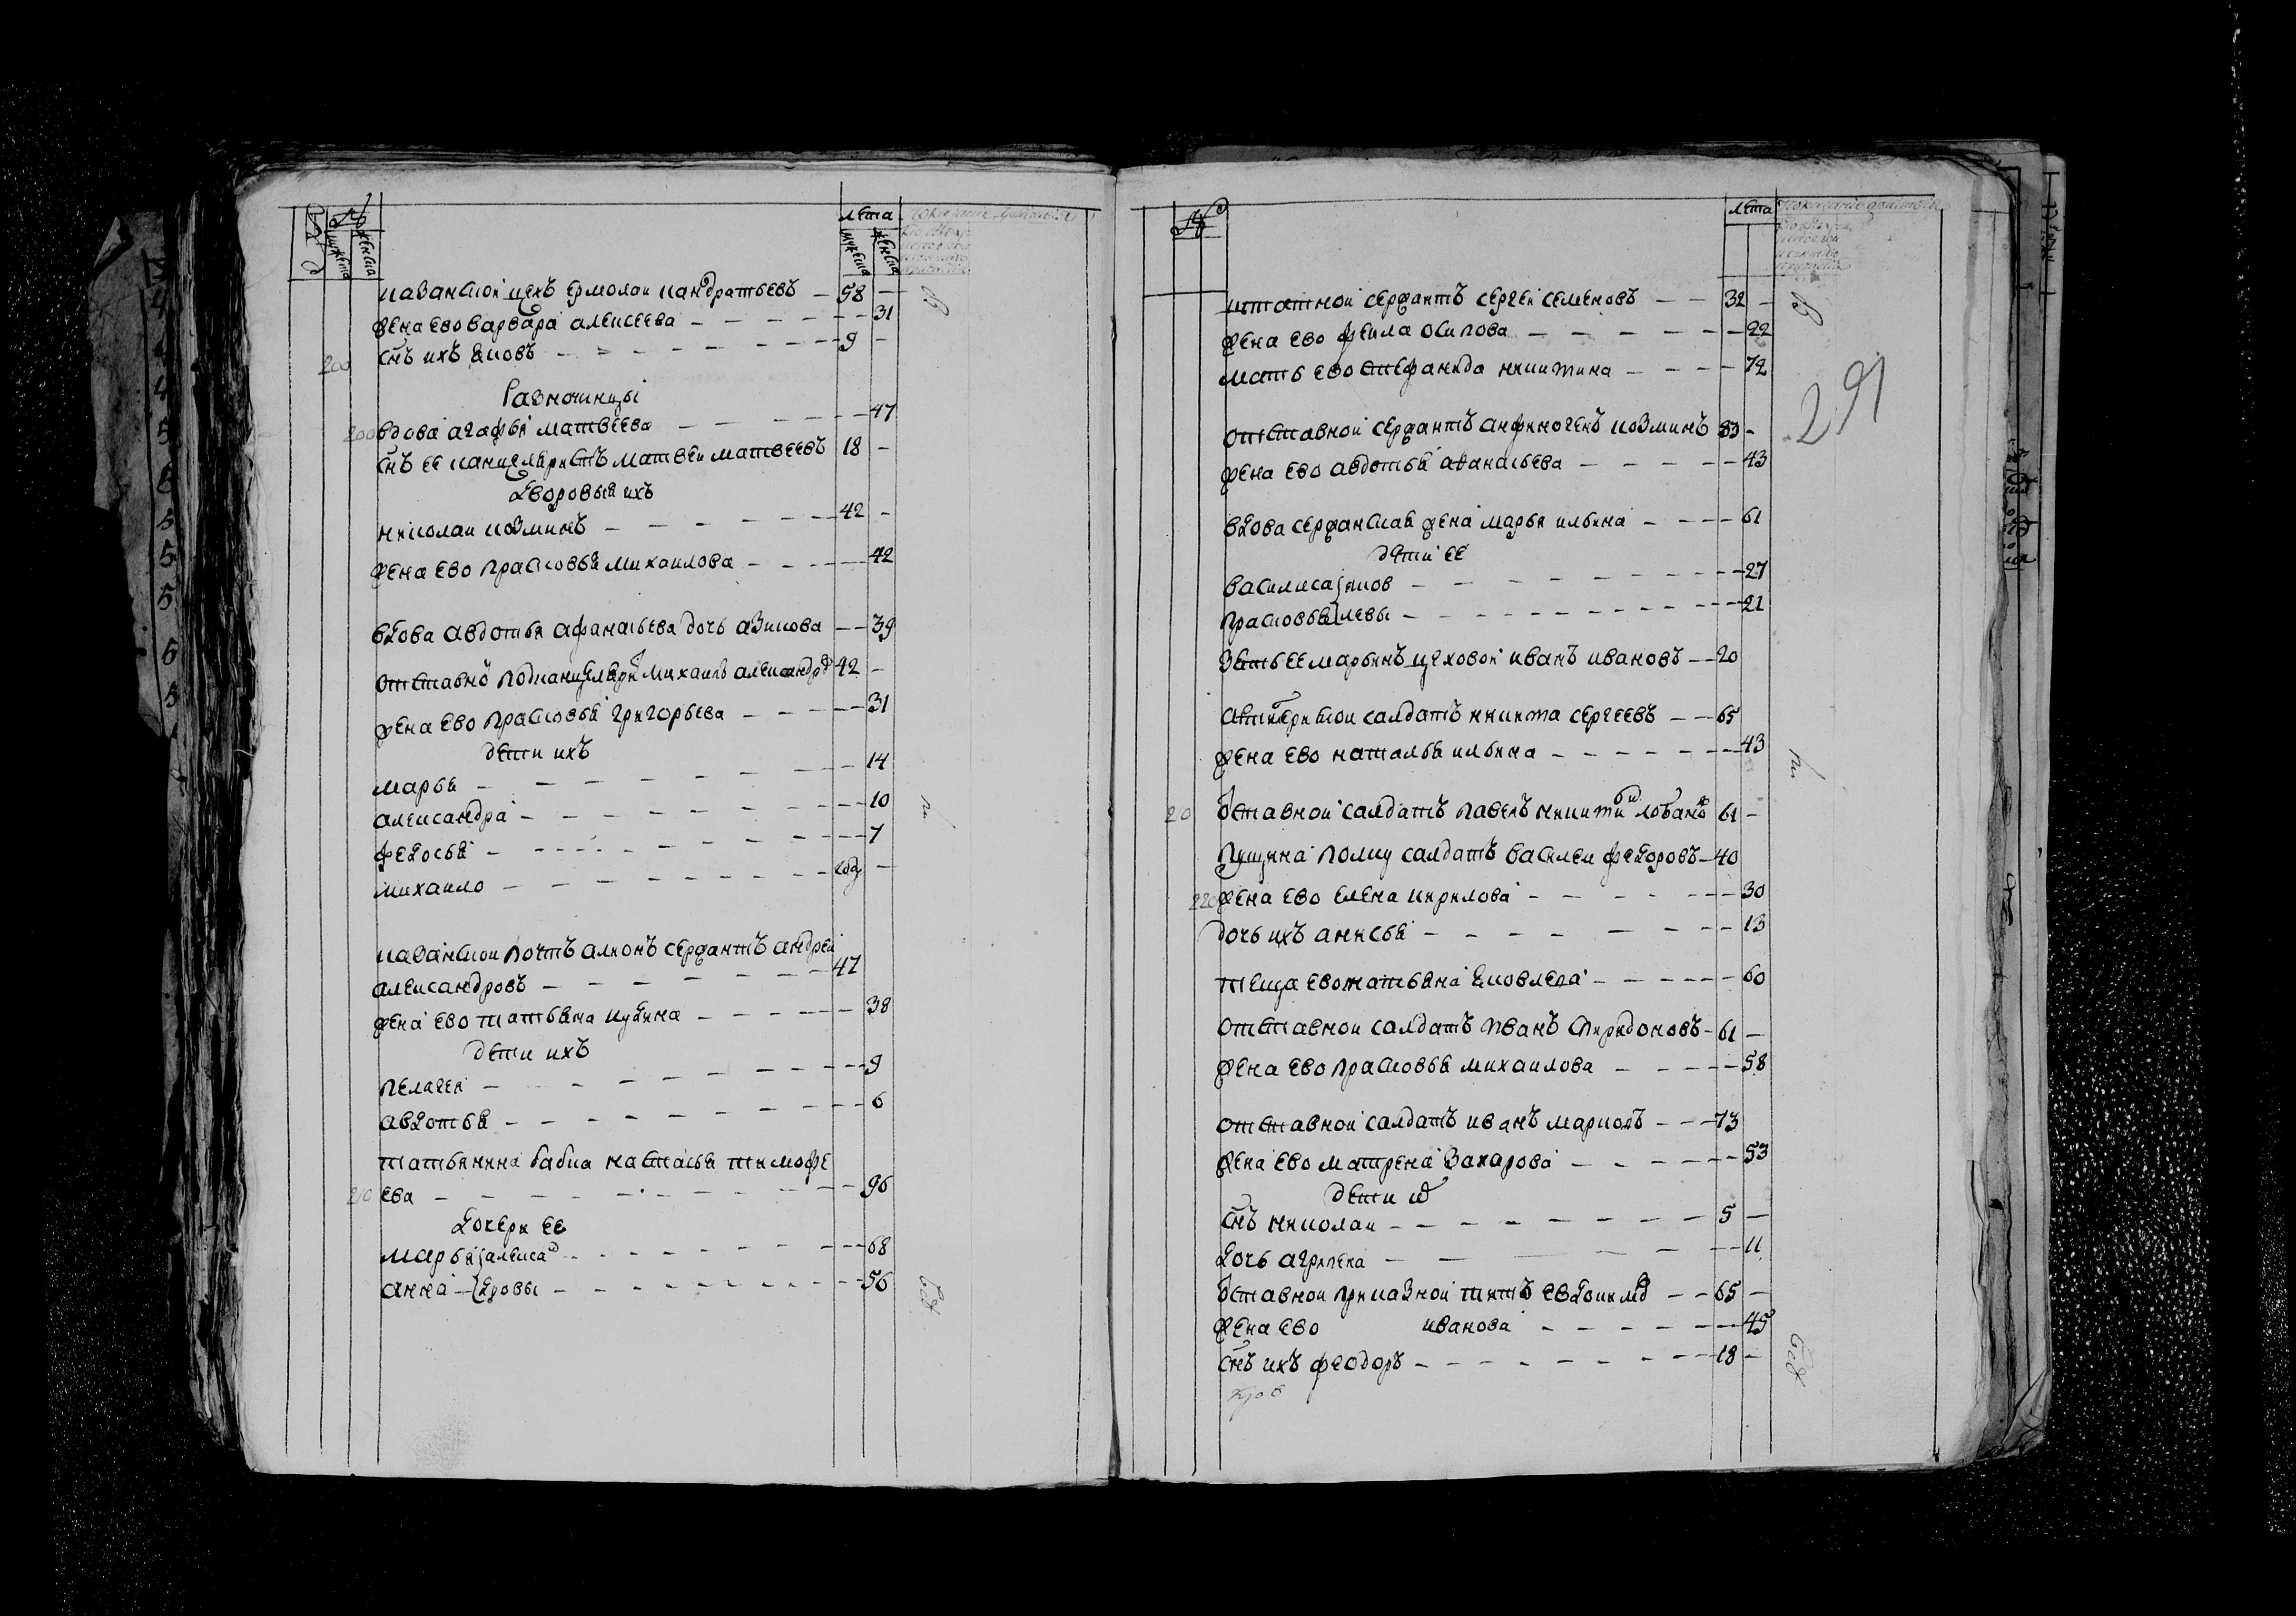 лета
мужеска
женска
казанской цехъ ермолаи кандратьевъ — 58 —
жена ево варвара алексеева — 31
снъ ихъ яковъ — 9 —
200
Разночинцы
200 вдова агафья матвеева — 47
снъ ее канцеляристъ матвеи матвеевъ 18 —
дворовыя ихъ
николаи козминъ — 42 —
жена ево прасковья михаилова — 42
вдова авдотья афанасьева дочь азикова — 39
отставно подканцеляри михаилъ александр 42 —
жена ево прасковья григорьева — 31
дети ихъ
марья — 14
александра — 10
федосья — 7
михаило — год —
казанскои почтъ алионъ сержантъ андреи
александровъ — 47
жена ево татьяна кузмина — 38
дети ихъ
пелагея — 9
авдотья — 6
татьянина бабка настасья тимофе
210 ева — 96
дочери ее
марья алекса — 68
анна — ндровы — 56
лета
штатнои сержантъ сергеи семеновъ — 32 —
жена ево фекла осипова — 22
мать ево стефанида никитина — 72
291
отставнои сержантъ анфиногенъ козминъ 83 —
жена ево авдотья аѳанасьева — 43
вдова сержанская жена марья ильина — 61
дети ее
василиса яков — 27
прасковья левы — 21
зять ее марьинъ цеховои иванъ ивановъ — 20
салдатъ никита сергеевъ — 65
жена ево наталья ильина — 43
210 отставнои салдатъ павелъ никити лобанъ 61 —
салдатъ василеи федоровъ — 40
220 жена ево елена кирилова — 30
дочь ихъ анисья — 13
теща ево татьяна яковлева — 60
отставнои салдатъ иванъ спиридоновъ — 61 —
жена ево прасковья михаилова — 58
отставнои салдатъ иванъ марковъ — 73
жена ево матрена захарова — 53
дети их
снъ николаи — 5 —
дочь агрипена — 11
отставнои приказнои титъ евдоким — 65 —
жена ево иванова — 45
снъ ихъ феодоръ — 18 —